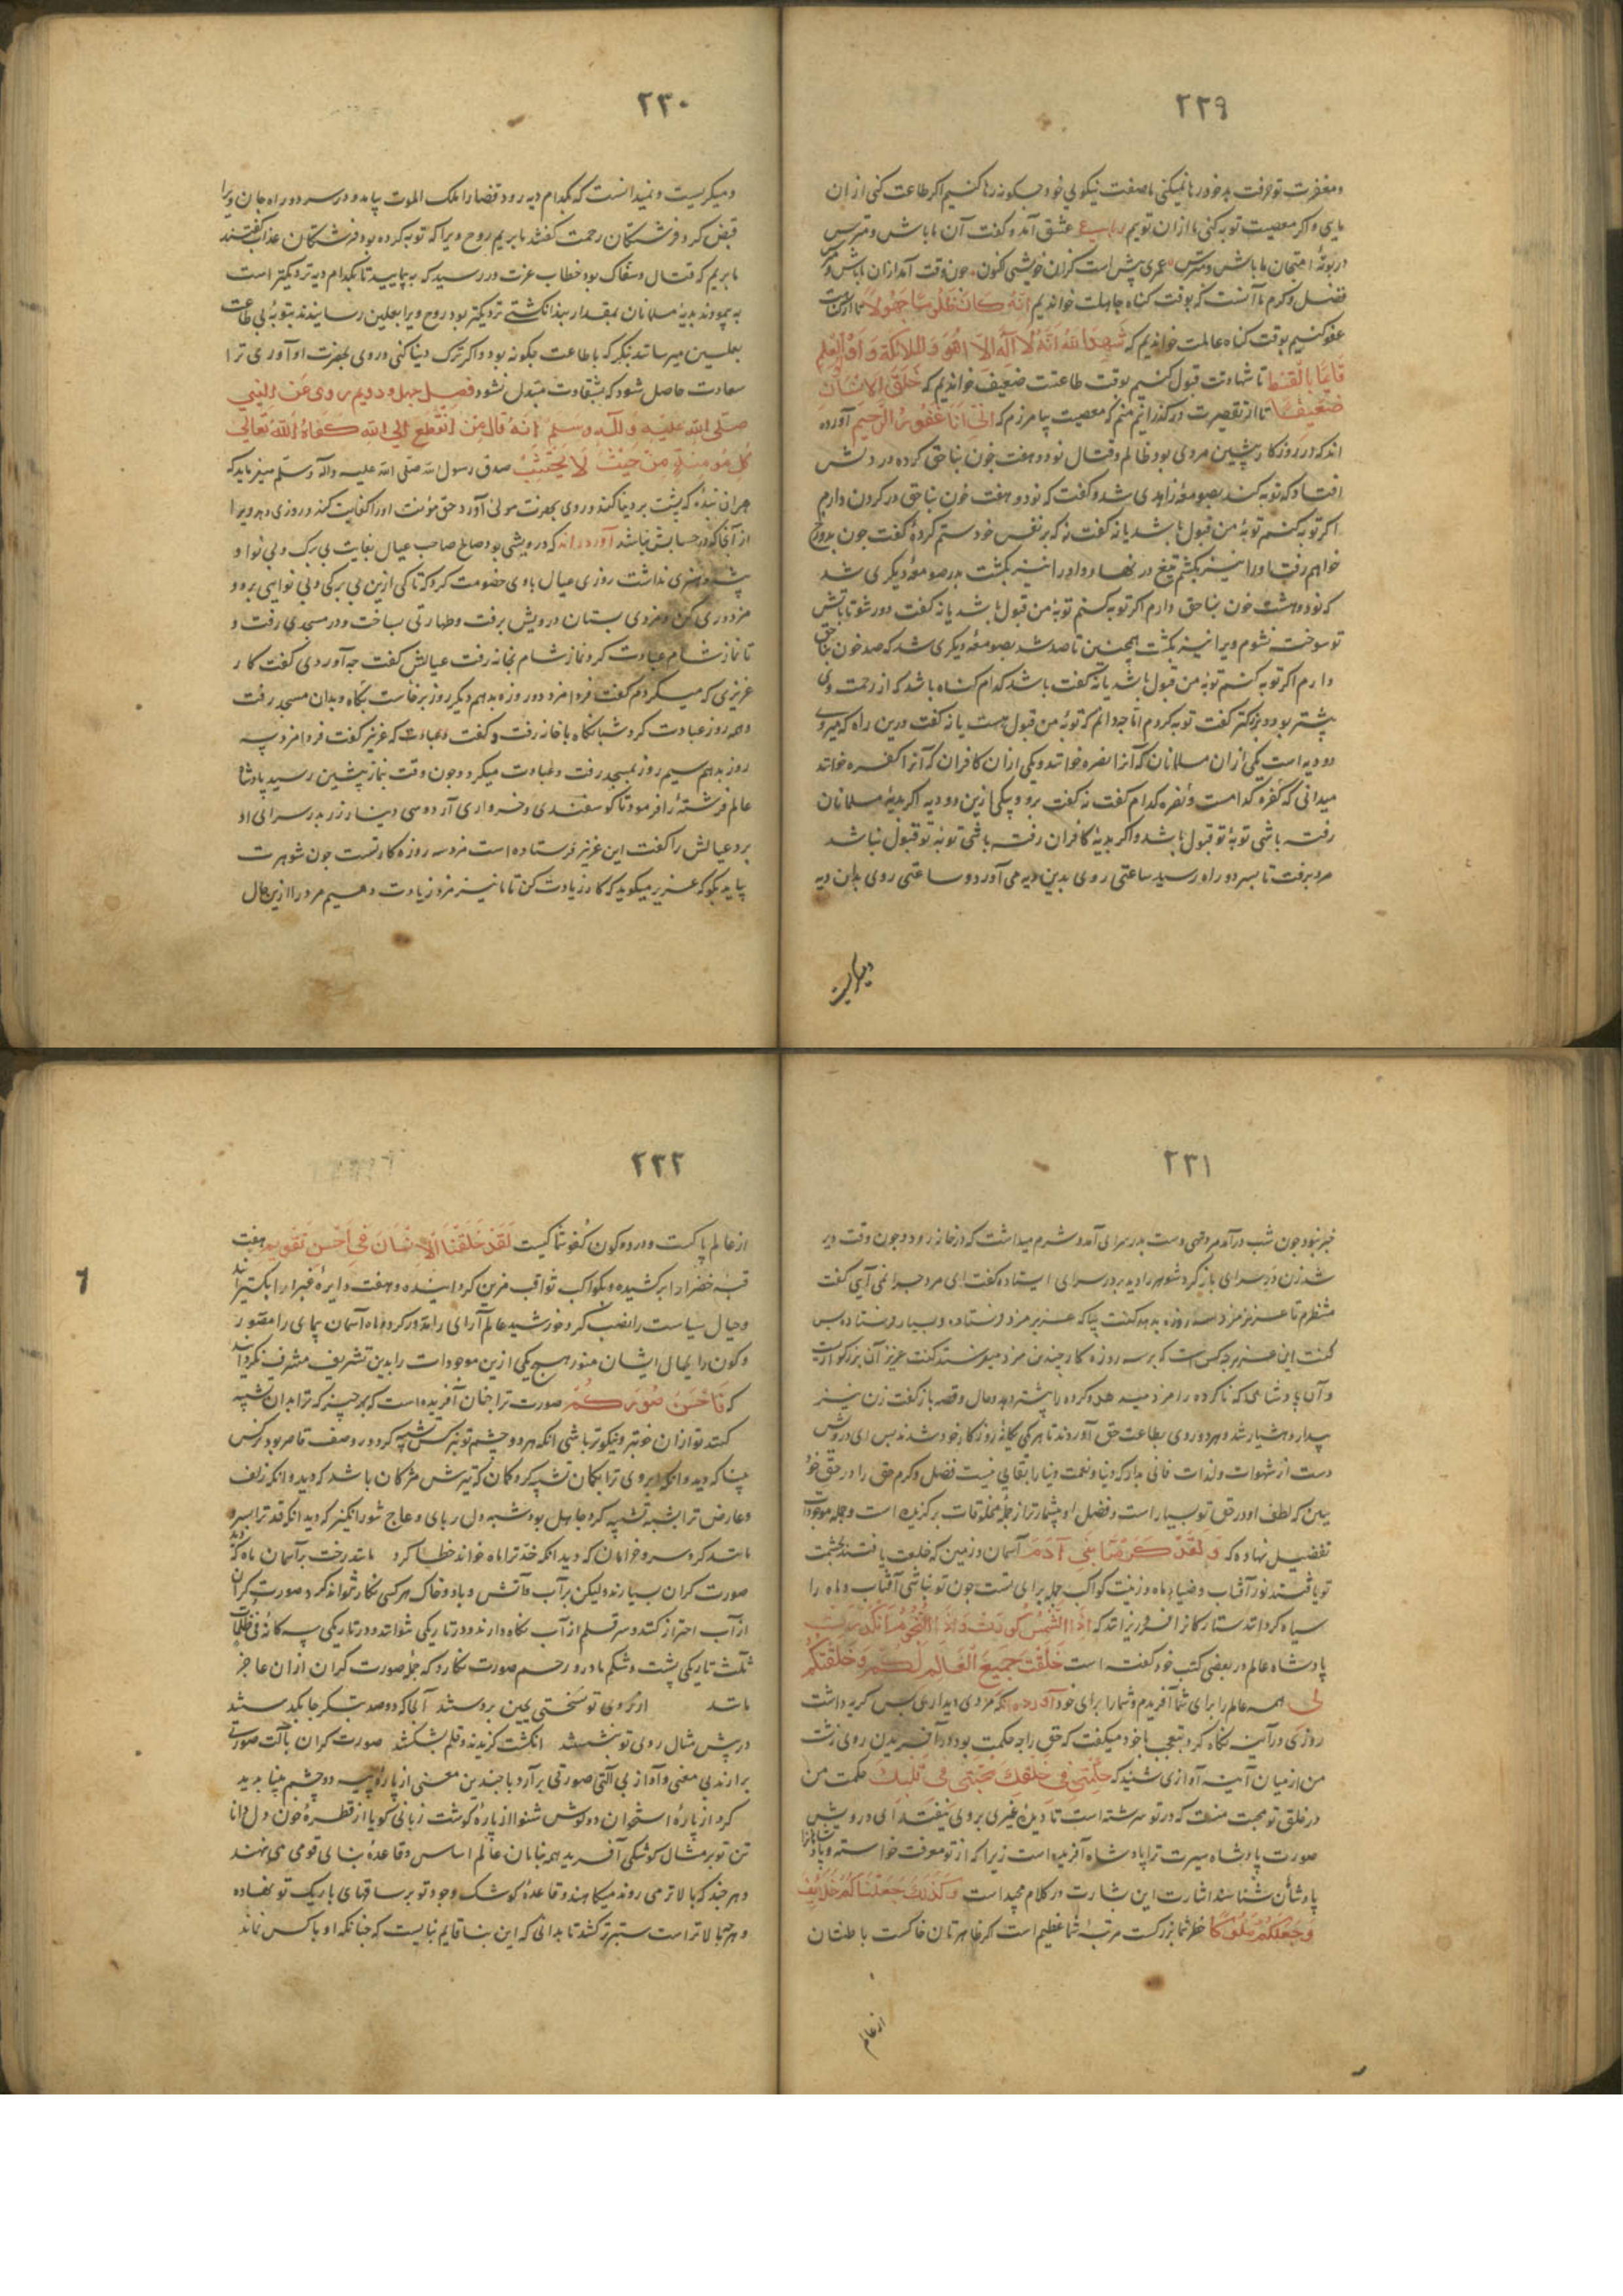 ٢٢٩
ومغفرت تو حرفت بد خود رها نمیکنی ما صفت نیکویی خود چکونه رها کنیم اکر طاعت کنی از ان
مایی واکر معصیت توبه کنی ما از ان توییم رباعی عشق آمد و کفت آن ما باش و مترس
در بوتهٔ امتحان ما باش و مترس عمری پیش است کران خویشی کنون چون وقت آمد از ان ما باش و مترس
فضل و کرم ما آنست که بوقت کناه جاهلت خواندیم انه كان ظلوما جهولا تا از سرت
عفو کنیم بوقت کناه عالمت خواندیم که شهد الله انه لا اله الا هو والملائكة واولوا العلم
قائما بالقسط تا شهادت قبول کنیم بوقت طاعتت ضعیف خواندیم که خلق الانسان
ضعيفا تا از تقصیرت در کذرانیم منم که معصیت بیامرزم که اني انا غفور الرحيم آورده
اند که در روزکار پیشین مردی بود ظالم و قتال نود و هفت خون بناحق کرده در دلش
افتاد که توبه کند بصومعهٔ زاهدی شد و کفت که نود و هفت خون بناحق در کردن دارم
اکر توبه کنم توبهٔ من قبول باشد یا نه کفت نه که بر نفس خود ستم کردهٔ کفت چون بدوزخ
خواهم رفت اورا نیز بکشم تیغ در نهاد و اورا نیز بکشت بدر صومعهٔ دیکری شد
که نود و هشت خون بناحق دارم اکر توبه کنم توبهٔ من قبول باشد یا نه کفت دور شو تا بآتش
تو سوخته نشوم ویرا نیز بکشت همچنین تا صد شد بصومعهٔ دیکری شد که صد خون بناحق
دارم اکر توبه کنم توبهٔ من قبول باشد یا نه کفت باشد کدام کناه باشد که از رحمت وی
بیشتر بود و بزرکتر کفت توبه کردم اما چه دانم که توبهٔ من قبول هست یا نه کفت درین راه که میروی
دو دیه است یکی از ان مسلمانان که آنرا نصره خوانند و یکی از ان کافران که آنرا کفره خوانند
میدانی که کفره کدامست و نصره کدام کفت نه کفت برو و بیکی ازین دو دیه اکر بدیهٔ مسلمانان
رفته باشی توبهٔ تو قبول باشد واکر بدیهٔ کافران رفته باشی توبهٔ تو قبول نباشد
مرد برفت تا بسر دو راه رسید ساعتی روی بدین دیه می آورد و ساعتی روی بدان دیه
ومیکریست
٢٣٠
ومیکریست و نمیدانست که بکدام دیه رود قضا را ملک الموت بیامد و در سر دو راه جان ویرا
قبض کرد فرشتکان رحمت کفتند ما بریم روح ویرا که توبه کرده بود فرشتکان عذاب کفتند
ما بریم که قتال و سفاک بود خطاب عزت در رسید که بپیمایید تا بکدام دیه نزدیکتر است
بپیمودند بدیهٔ مسلمانان بمقدار بند انکشتی نزدیکتر بود روح ویرا بعلیین رسانیدند بتوبهٔ بی طاعت
بعلیین میرسانند بنکر که با طاعت چکونه بود واکر ترک دنیا کنی و روی بحضرت او آوری ترا
سعادت حاصل شود که بشقاوت متبدل نشود فصل چهل و دویم روى عن النبي
صلى الله عليه وآله وسلم انه قال من انقطع الى الله كفاه الله تعالى
كل مؤمنة من حيث لا يحتسب صدق رسول الله صلی الله علیه وآله وسلم میفرماید که
هر ان بندهٔ که پشت بر دنیا کند و روی بحضرت مولی آورد حق مؤنت اورا کفایت کند و روزی دهد ویرا
از آنجا که در حسابش نباشد آورده اند که درویشی بود صالح صاحب عیال بغایت بی برک و بی نوا و
پیشه و هنری نداشت روزی عیال با وی خصومت کرد که تا کی ازین بی برکی و بی نوایی برو و
مزدوری کن و مزدی بستان درویش برفت و طهارتی بساخت و در مسجدی رفت و
تا نماز شام عبادت کرد نماز شام بخانه رفت عیالش کفت چه آوردی کفت کار
عزیزی که میکردم کفت فردا مزد دو روزه بدهم دیکر روز برخاست پکاه و بدان مسجد رفت
و همه روز عبادت کرد شبانکاه با خانه رفت و کفت وعباوت که عزیز کفت فردا مزد سه
روز بدهم سیم روز بمسجد رفت و عبادت میکرد و چون وقت نماز پیشین رسید پادشاه
عالم فرشتهٔ را فرمود تا کوسفندی و خرواری آرد و سی دینار زر بدر سرای او
برد عیالش را کفت این عزیز فرستاده است مزد سه روزه کار تست چون شوهرت
بیاید بکو که عزیز میکوید که کار زیادت کن تا ما نیز مزد زیادت دهیم مرد را ازین حال
٢٣١
خبر نبود چون شب در آمد مرد تهی دست بدر سرای آمد و شرم میداشت که در خانه رود و چون وقت دیر
شد زن در سرای باز کرد شوهر را دید بر در سرای ایستاده کفت ای مرد چرا نمی آیی کفت
منتظرم تا عزیز مزد سه روزه بدهد کفت بیا که عزیز مزد فرستاده و بسیار فرستاده پس
کفت این عزیز چه کس است که بر سه روزه کار چندین مزد میفرستد کفت عزیز آن بزرکوارست
و آن پادشاهی که ناکرده را مزد میدهد و کرده را بیشتر دهد و حال و قصه باز کفت زن نیز
بیدار و هشیار شد و هر دو روی بطاعت حق آوردند تا هر یکی یکانهٔ روزکار خود شدند پس ای درویش
دست از شهوات و لذات فانی بدار که دنیا و نعمت دنیا را بقایی نیست فضل و کرم حق را در حق خود
ببین که لطف او در حق تو بسیار است و فضل او بیشمار ترا از جملهٔ مخلوقات برکزیده است و جمله موجودات
تفضیل نهاده که ولقد كرمنا بني آدم آسمان و زمین که خلعت یافتند بحشمت
تو یافتند نور آفتاب و ضیاء ماه و زینت کواکب جمله برای تست چون تو نباشی آفتاب و ماه را
سیاه کردانند ستارکان را فرو ریزانند که اذا الشمس كورت واذا النجوم انكدرت
پادشاه عالم در بعضی کتب خود کفته است خلقت جميع العالم لكم وخلقتكم
لی همه عالم را برای شما آفریدم و شما را برای خود آورده اند که مردی دیداری بس کریه داشت
روزی در آینه نکاه کرد بتعجب با خود میکفت که حق را چه حکمت بود در آفریدن روی زشت
من از میان آینه آوازی شنید که حكمتي في خلقك محبتي في قلبك حکمت من
در خلق تو محبت منست که در تو سرشته است تا دیدهٔ غیری بر روی تو نیفتد ای درویش
صورت پادشاه سیرت ترا پادشاه آفریده است زیرا که از تو معرفت خواسته و پادشاهانرا
پادشاهان شناسند اشارت این بشارت در کلام مجید است وكذلك جعلناكم خلائف
وجعلكم ملوكا خطر شما بزرکست مرتبهٔ شما عظیم است اکر ظاهرتان خاکست باطنتان
از عالم
٢٣٢
از عالم پاکست و در دو کون کفو شما کیست لقد خلقنا الانسان في احسن تقويم هفت
قبهٔ خضرا را بر کشیده و بکواکب ثواقب مزین کردانیده و هفت دایرهٔ غبرا را بکسترانید
و جبال سیاست را نصب کرد خورشید عالم آرای را مدور کرد و ماه آسمان پیمای را مصور
و کون را بجمال ایشان منور هیچ یکی ازین موجودات را بدین تشریف مشرف نکردانید
که فاحسن صوركم صورت ترا چنان آفریده است که بهر چیز که ترا بدان تشبیه
کنند تو از ان خوبتر و نیکوتر باشی انکه هر دو چشم تو بنرکس تشبیه کرد در وصف قاصر بود نرکس
بینا که دید و انکه ابروی ترا بکمان تشبیه کرد کمان که تیرش مژکان باشد که دید و انکه زلف
و عارض ترا بشبه تشبیه کرد جاهل بود شبه دل ربای و عاج شور انکیز که دید انکه قد ترا بسرو
مانند کرد سرو خرامان که دید انکه خد ترا ماه خواند خطا کرد ماند رخت بر آسمان ماه که دید
صورت کران بسیارند ولیکن بر آب و آتش و باد و خاک هر کسی نکار نتواند کرد صورت کران
از آب احتراز کنند و سر قلم از آب نکاه دارند و در تاریکی نتوانند و در تاریکی سه کانهٔ في ظلمات
ثلث تاریکی پشت و شکم مادر و رحم صورت نکارد که جمله صورت کران از ان عاجز
باشند از روی تو نسختی بچین بردستند آنجا که دو صد بتکر چابکدستند
در پیش مثال روی تو بنشستند انکشت کزیدند و قلم بشکستند صورت کران بآلت صورتی
برارند بی معنی و آواز بی آلتی صورتی برآرد با چندین معنی از پارهٔ پیه دو چشم بینا پدید
کرد از پارهٔ استخوان دو کوش شنوا از پارهٔ کوشت زبانی کویا از قطرهٔ خون دل دانا
تن تو بر مثال کوشکی آفرید همه بنایان عالم اساس و قاعدهٔ بنای قومی می نهند
و هر چند که بالاتر می روند میکاهند و قاعدهٔ کوشک وجود تو بر ساقهای باریک تو نهاده
و هر چه بالاتر است ستبرتر کشد تا بدانی که این بنا قایم نباییست که چنانکه او با کس نماند